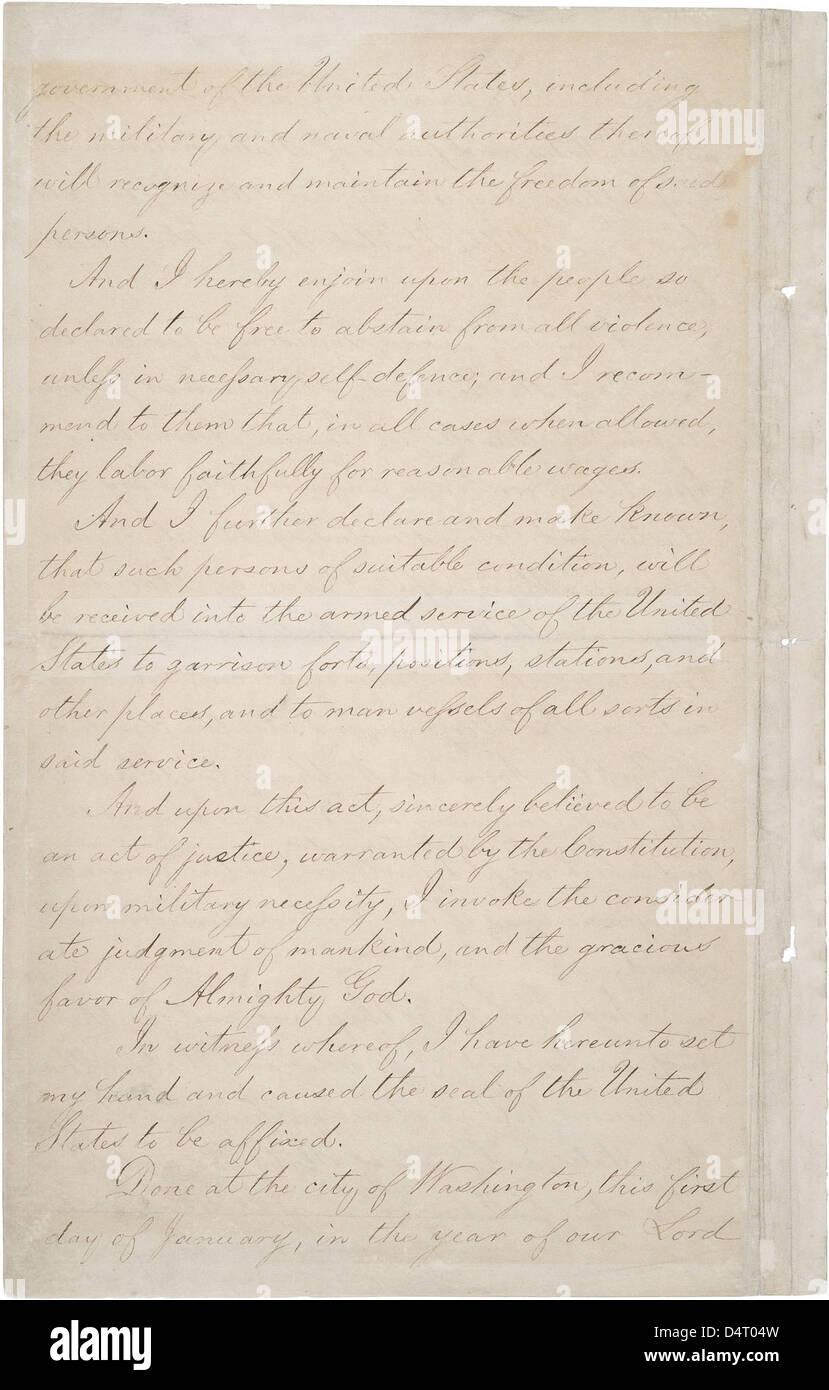 government of the United States, including
the military and naval authorities thereof,
will recognize and maintain the freedom of said
persons.
And I hereby enjoin upon the people so
declared to be free to abstain from all violence,
unless in necessary self-defence; and I recom-
mend to them that, in all cases when allowed,
they labor faithfully for reasonable wages.
And I further declare and make known,
that such persons of suitable condition, will
be received into the armed service of the United
States to garrison forts, positions, stations, and
other places, and to man vessels of all sorts in
said service.
And upon this act, sincerely believed to be
an act of justice, warranted by the Constitution,
upon military necessity, I invoke the consider-
ate judgment of mankind, and the gracious
favor of Almighty God.
In witness whereof, I have hereunto set
my hand and caused the seal of the United
States to be affixed.
Done at the city of Washington, this first
day of January, in the year of our Lord
alamy
Image ID: D4T04W
www.alamy.com